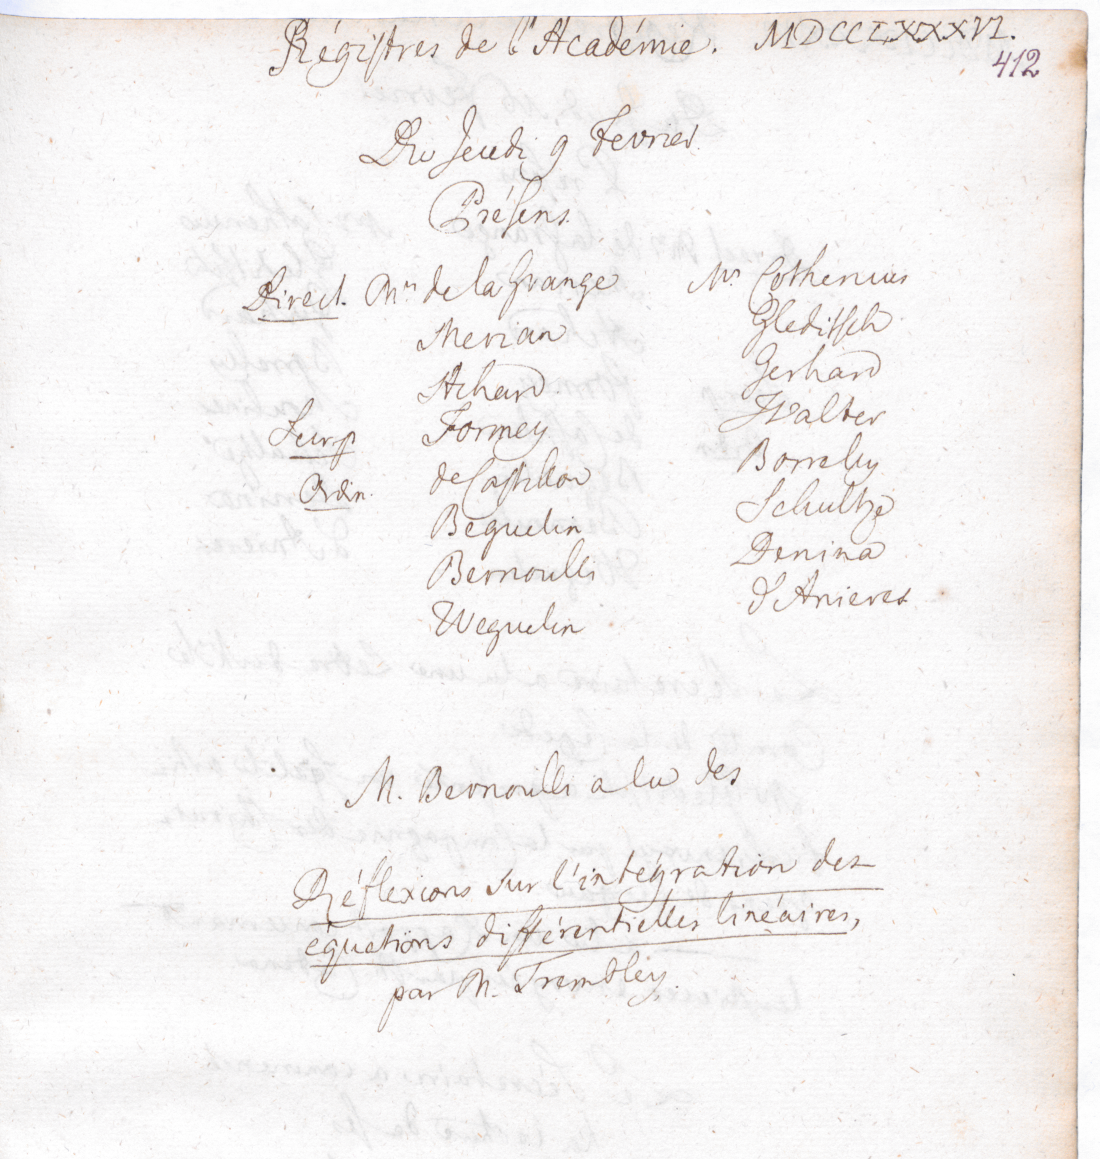 Régistres de l'Académie. MDCCLXXXVI.
412
Du Jeudi 9 Fevrier
Présens
Direct. Mrs de la Grange
Merian
Achard
Formey
Ordin. de Castillon
Beguelin
Bernoulli
Weguelin
Mrs Cothenius
Gleditsch
Gerhard
Walter
Borrelly
Schultze
Denina
d'Anieres
M. Bernoulli a lu des
Réflexions sur l'intégration des
équations différentielles linéaires,
par M. Trembley.